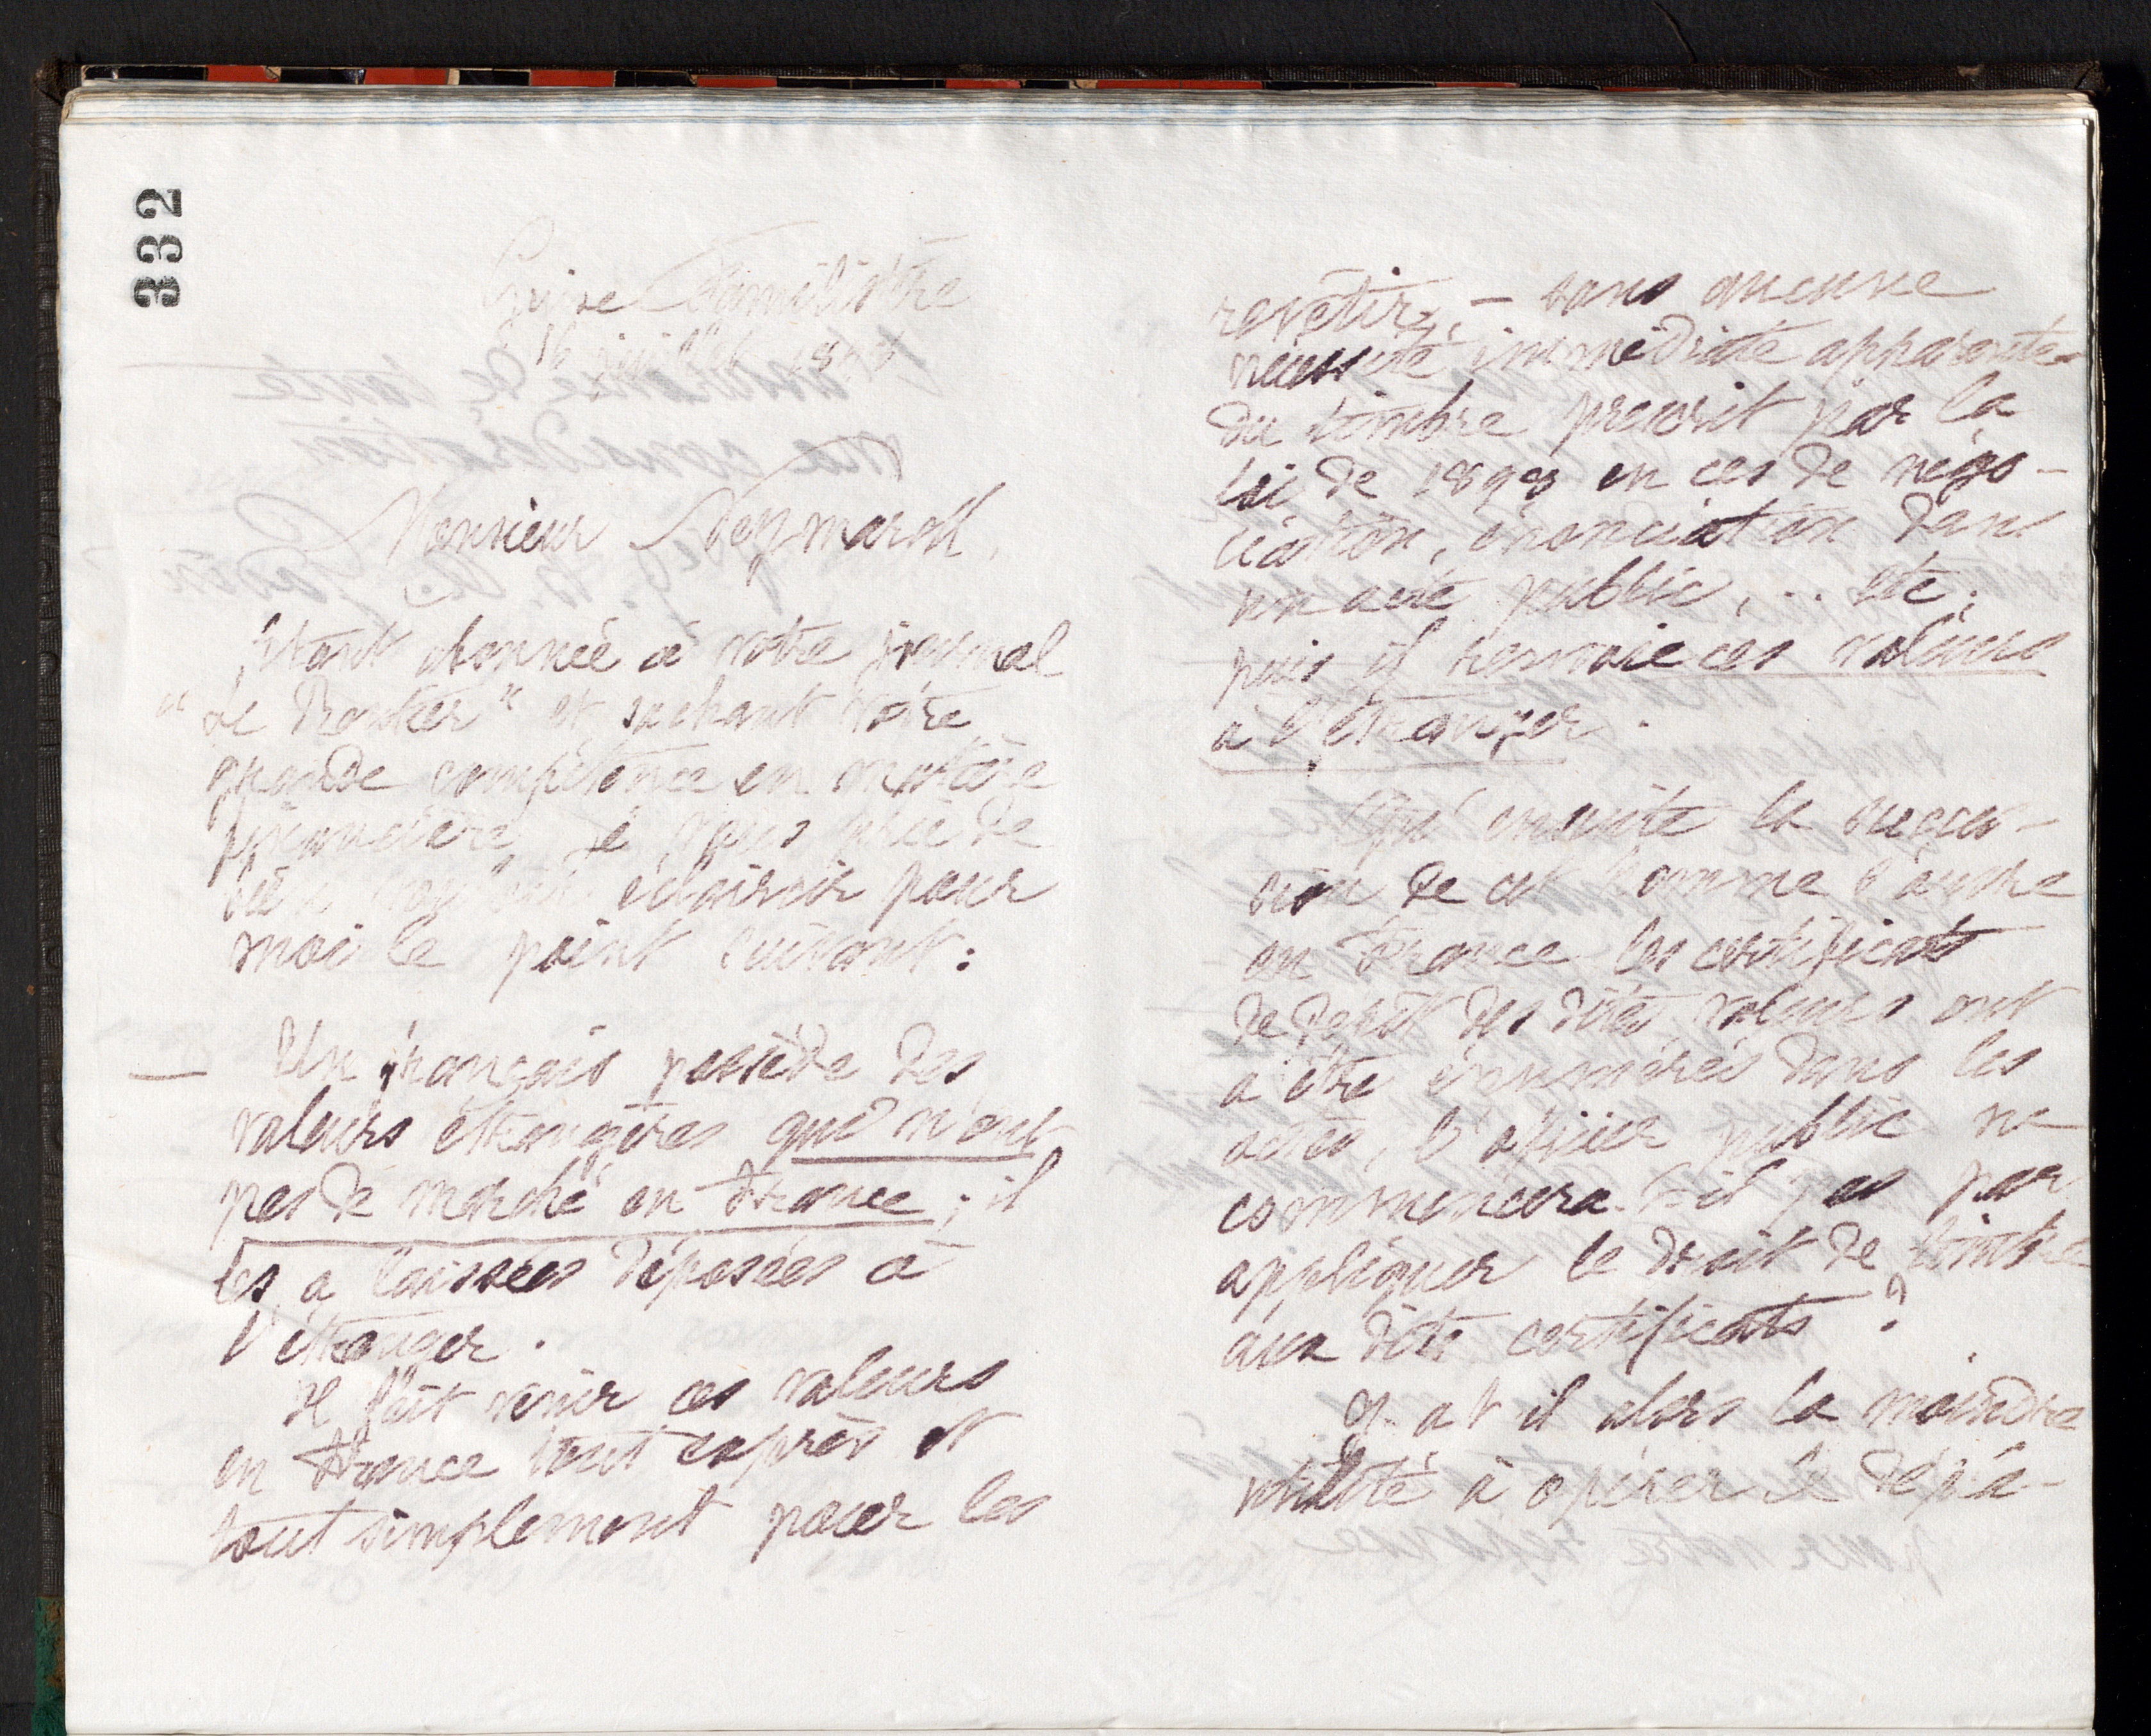 332
Guise Familistère
16 juillet 18
Monsieur Neymarck,
Étant abonnée à votre journal
"Le Rentier" et sachant votre
grande compétence en matière
financière, je vous prie de
bien vouloir éclaircir pour
moi le point suivant :
— Un français possède des
valeurs étrangères qui n'ont
pas de marché en France ; il
les a laissées déposées à
l'étranger.
Il fait venir ces valeurs
en France tout exprès et
tout simplement pour les
revêtir, - sans aucune
nécessité immédiate apparente -
du timbre prescrit par la
loi de en cas de négo-
ciation, énonciation dans
un acte public, .. etc ;
puis il renvoie ces valeurs
à l'étranger.
Qu'ensuite la succes-
sion de cet homme s'ouvre
en France les certificats
de dépôt des dites valeurs ont
à être énumérés dans les
actes, l'officier public ne
commencera-t-il pas par
appliquer le droit de timbre
aux dits certificats ?
Y a t il alors la moindre
utilité à opérer le dépla-